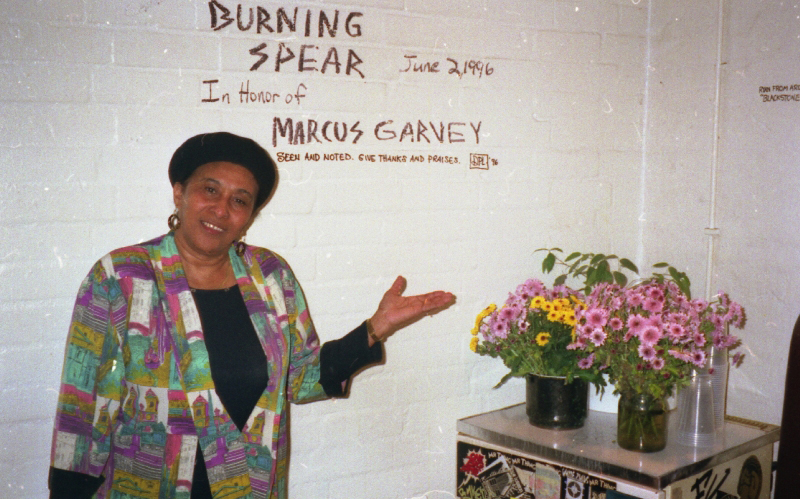 BURNING
SPEAR
June 2, 1996
In Honor of
MARCUS GARVEY
SEEN AND NOTED. GIVE THANKS AND PRAISES.
96
RYAN FROM
"BLACKSTONE